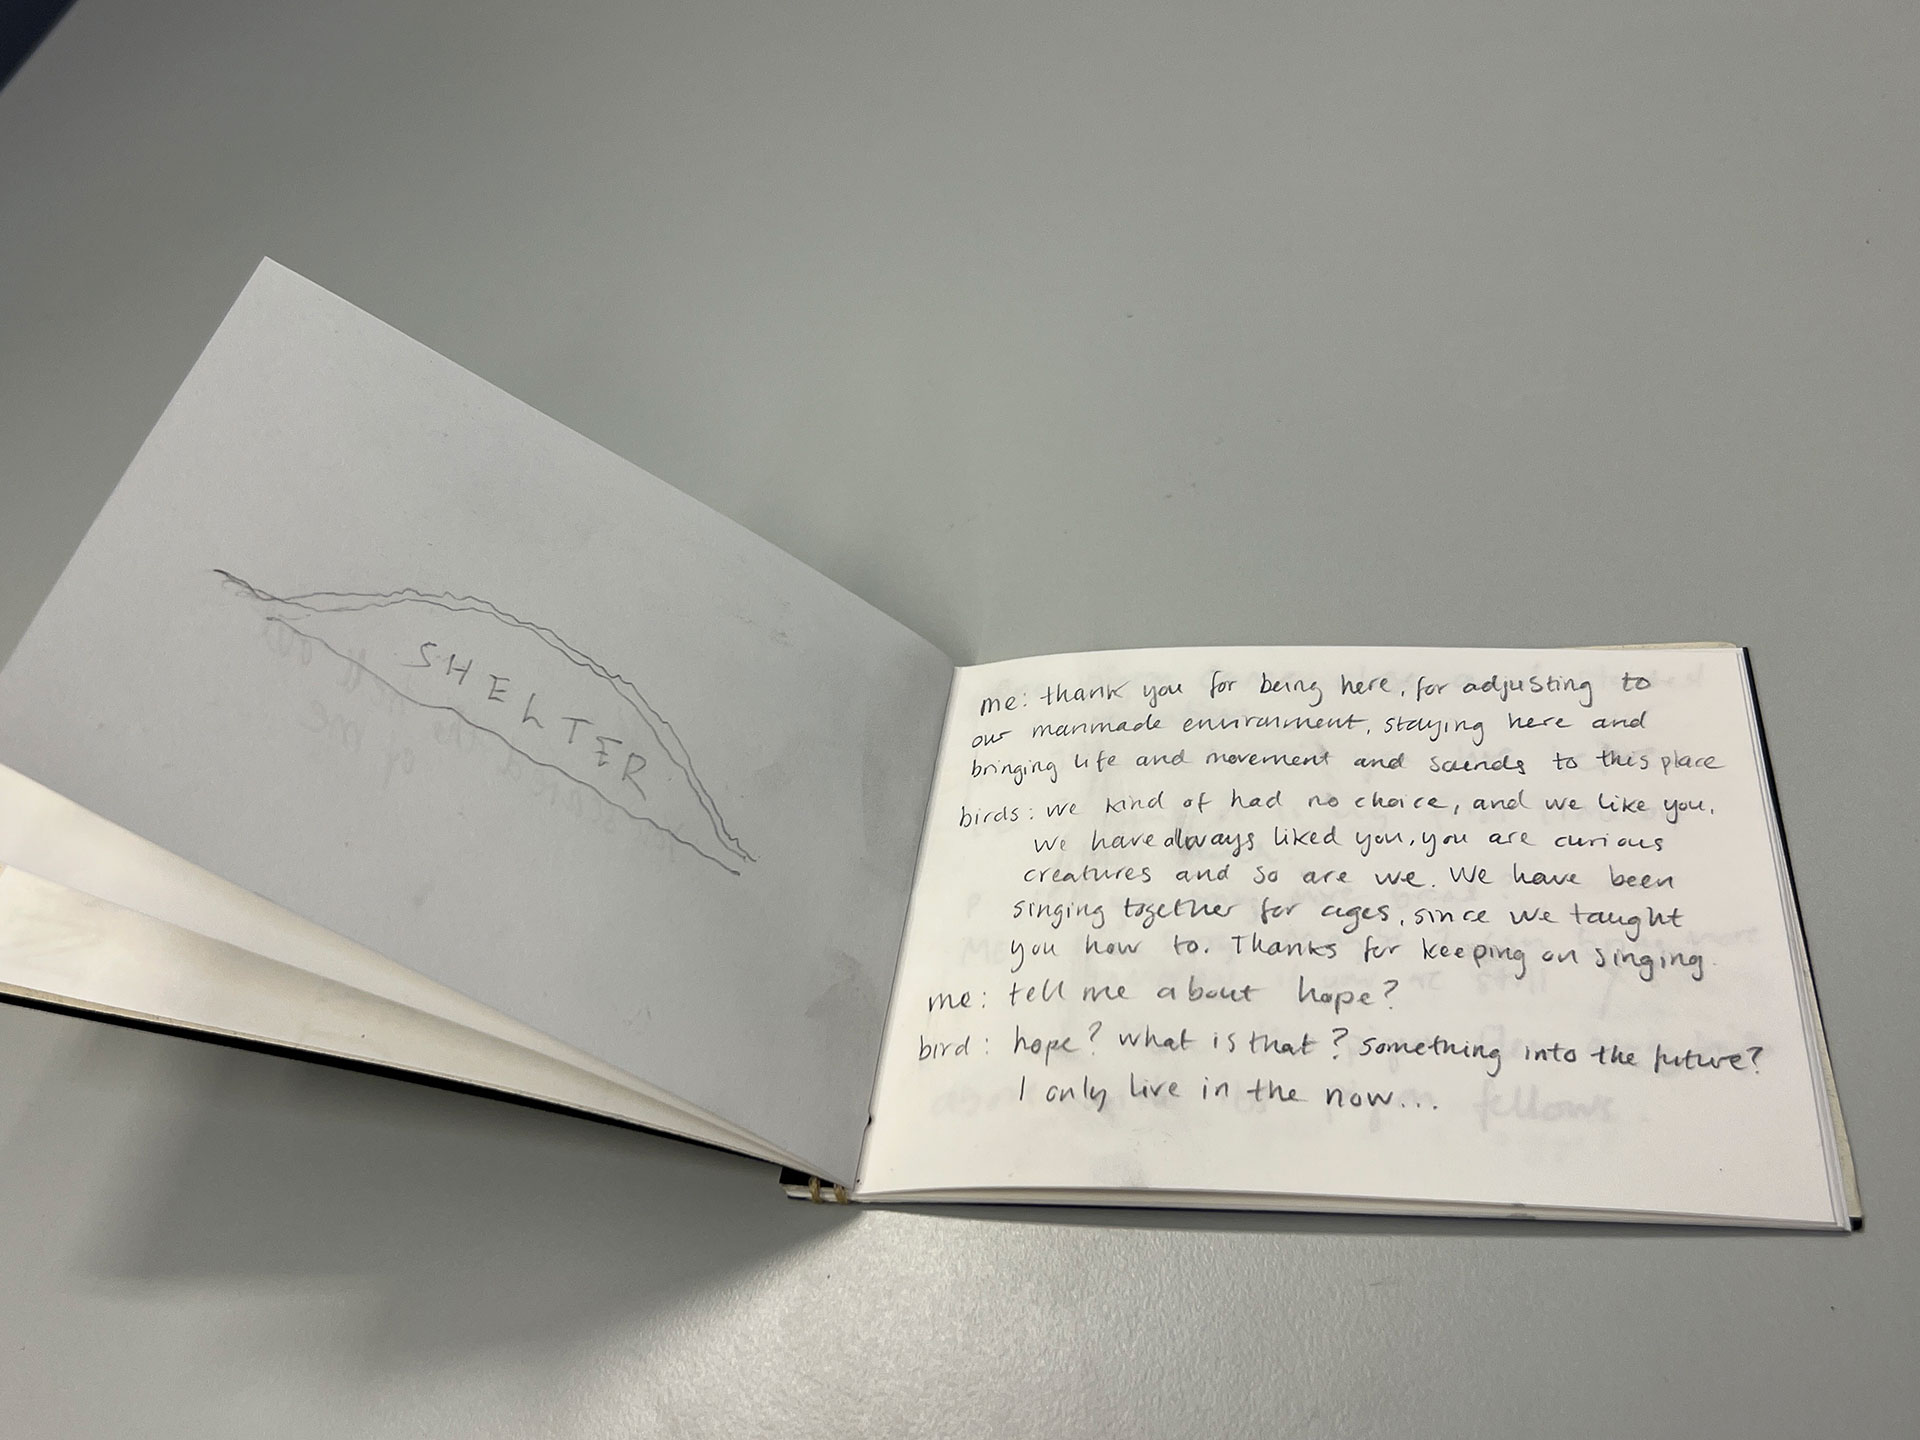 SHELTER
me: thank you for being here, for adjusting to
our manmade environment, staying here and
bringing life and movement and sounds to this place
birds: we kind of had no choice, and we like you,
we have always liked you, you are curious
creatures and so are we. We have been
singing together for ages, since we taught
you how to. Thanks for keeping on singing.
me: tell me about hope?
bird: hope? what is that? something into the future?
I only live in the now...
fellows.